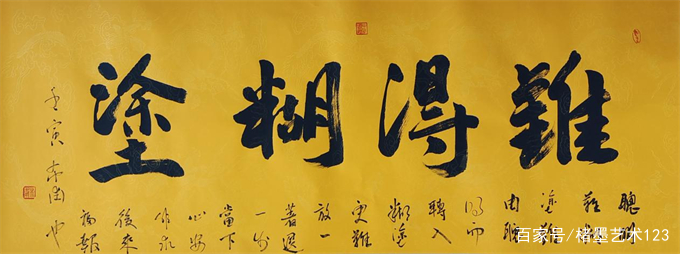 難得糊塗
聰明
難糊
塗難
由聰
明而
轉入
糊塗
更難
放一
著退
一步
當下
心安
非求
後來
福報
也
壬寅
百家号/楮墨艺术123